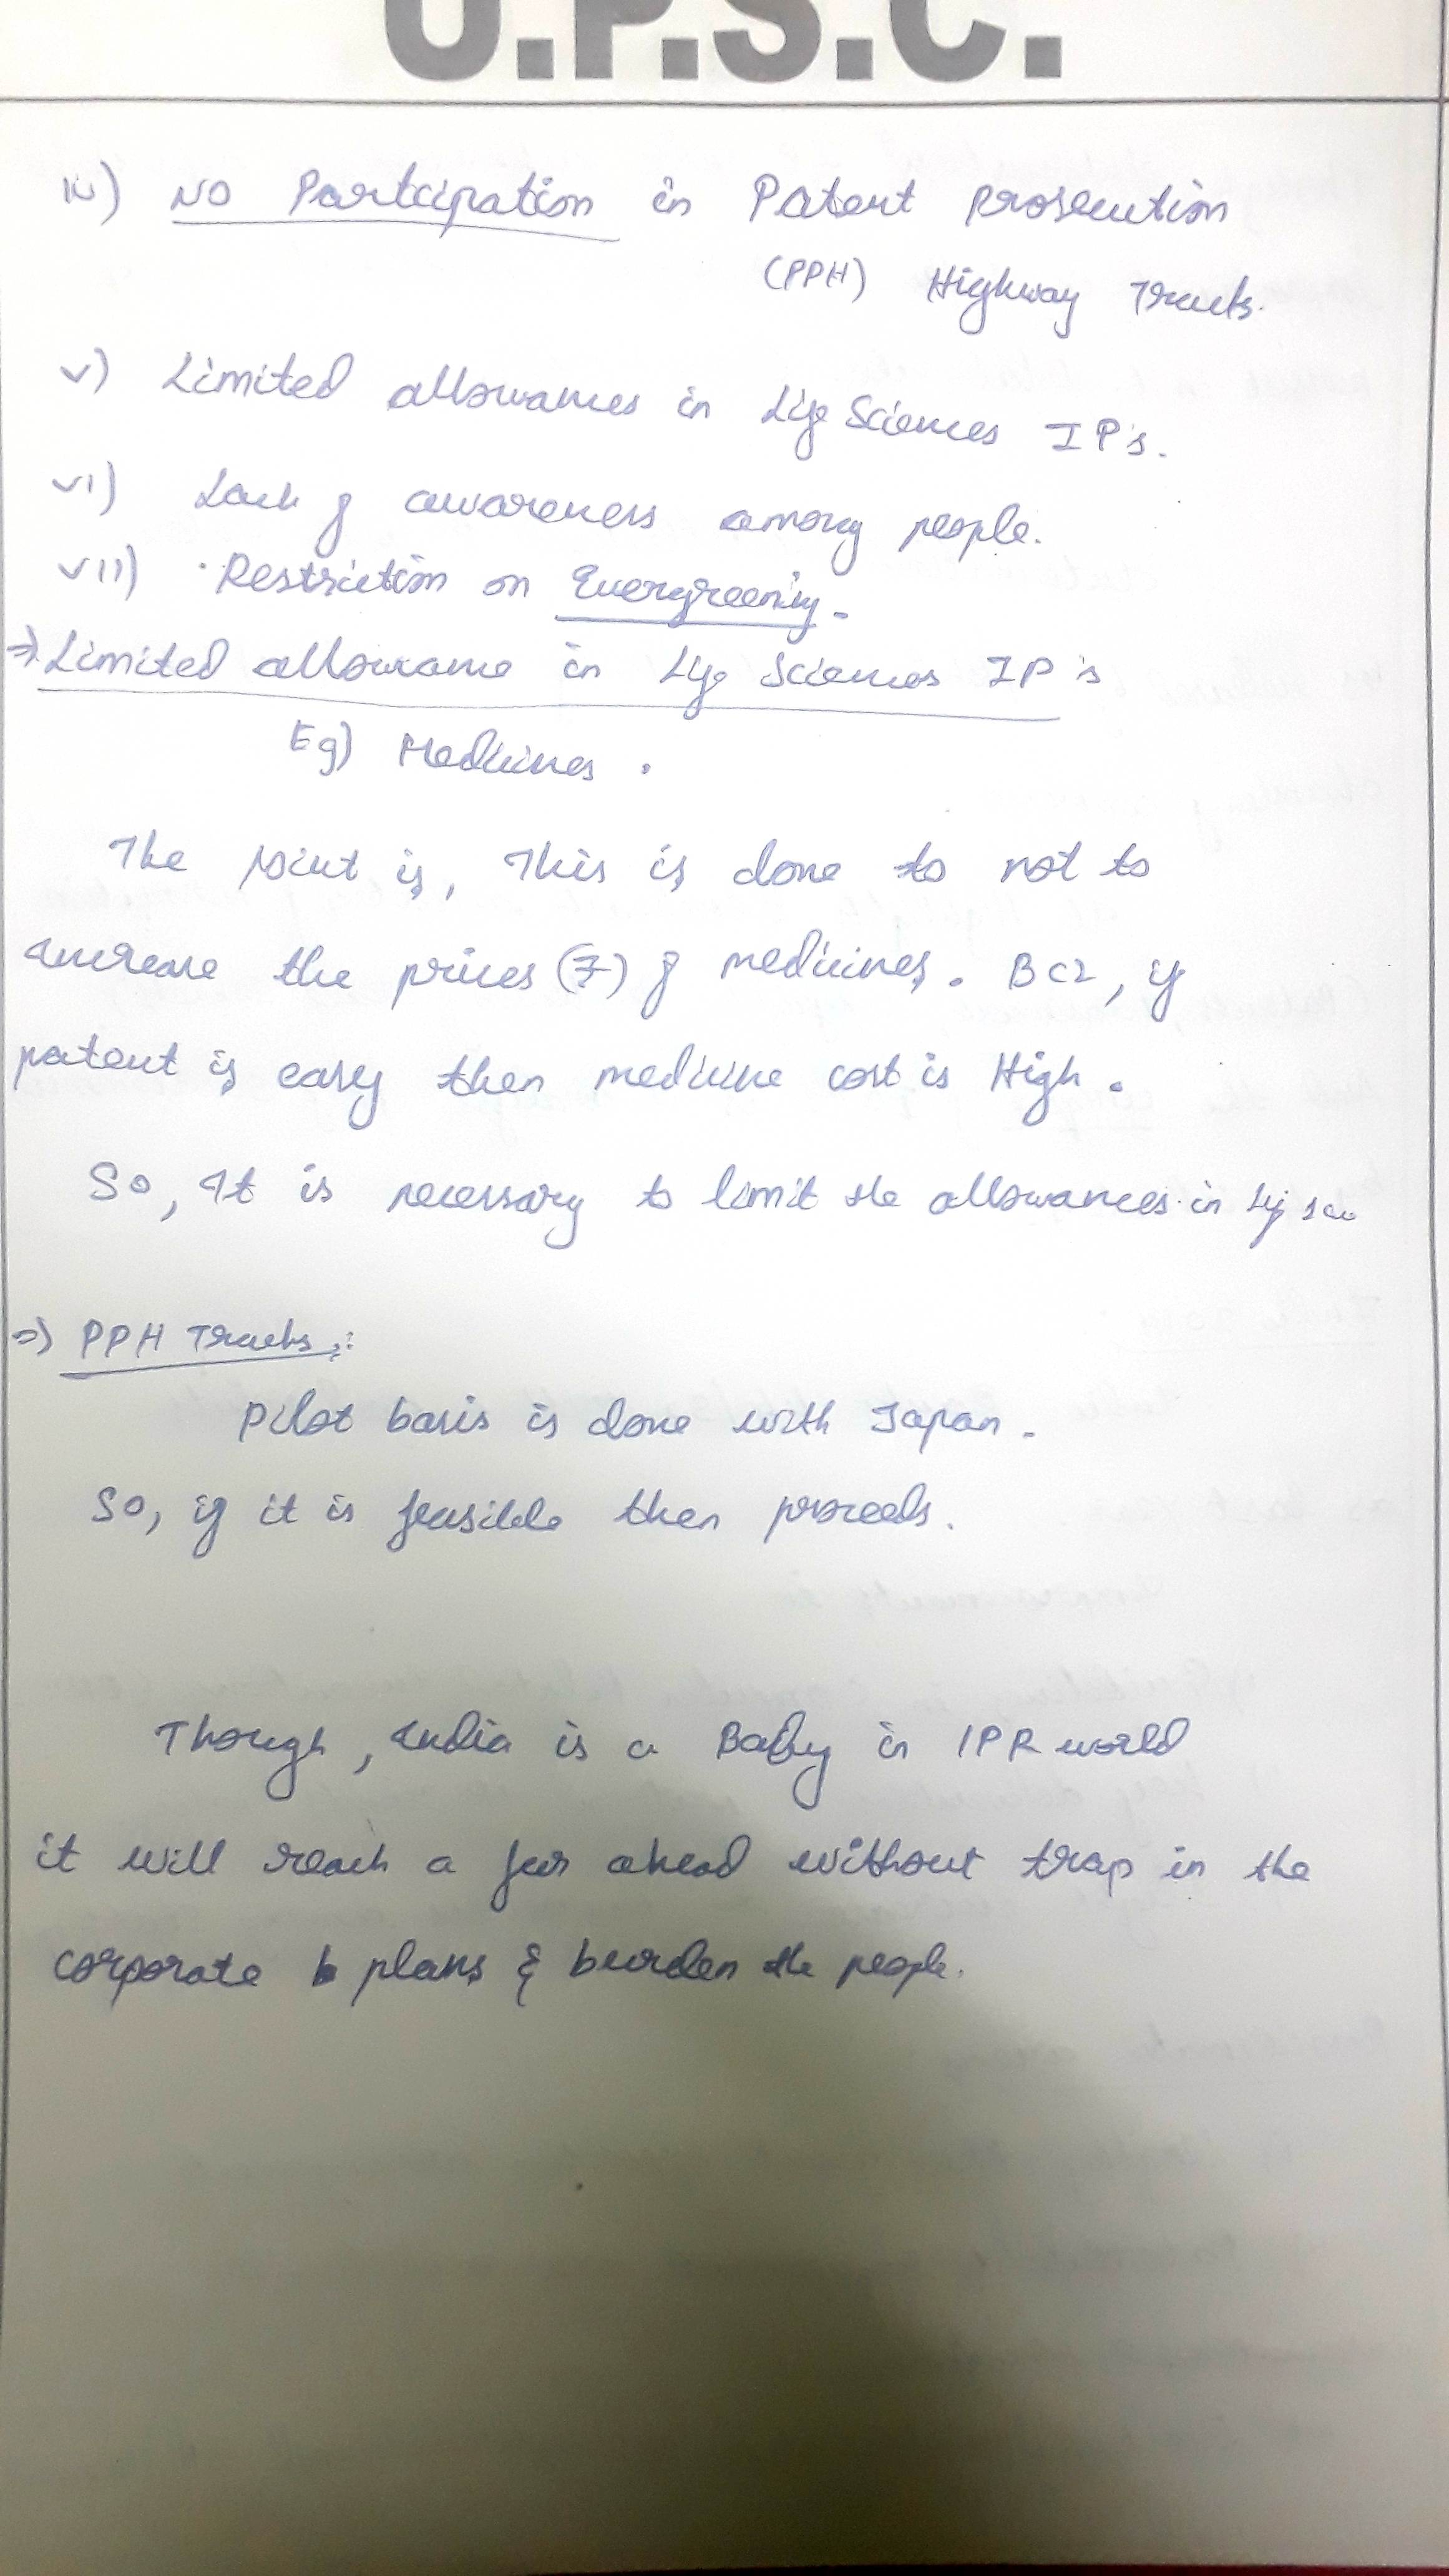 U.P.S.C.
iv) NO Participation in Patent Prosecution
(PPH) Highway Tracts.
v) Limited allowances in Life Sciences IP's.
vi) Lack of awareness among people.
vii) Restriction on Evergreening.
⇒ Limited allowance in Life Sciences IP's
Eg) Medicines.
The point is, This is done to not to
increase the prices (₹) of medicines. Bcz, if
patent is easy then medicine cost is High.
So, It is necessary to limit the allowances in
⇒ PPH Tracts:
Pilot basis is done with Japan.
So, if it is feasible then proceeds.
Though, India is a Baby in IPR world
it will reach a far ahead without trap in the
corporate plans & burden the people.